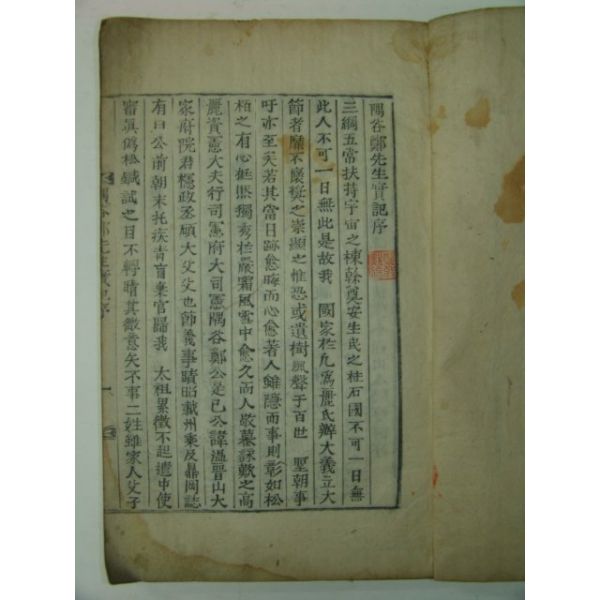 隅谷鄭先生實記序
三綱五常扶持宇宙之棟幹奠安生民之柱石國不可一日無
此人不可一日無此是故我 國家於凡爲麗氏辦大義立大
節者靡不褒奬之崇顯之惟恐或遺樹風聲于百世 聖朝事
吁亦至矣若其當日跡愈晦而心愈著人雖隱而事則彰如松
栢之有心挺然獨秀於嚴霜風雪中愈久而人敬慕詠歎之高
麗資憲大夫行司憲府大司憲隅谷鄭公是已公諱溫晉山大
家府院君穩政丞碩大父父也節義事蹟昭載州乘及鼎岡誌
有曰公前朝末托疾靑盲棄官歸我 太祖累徵不起遣中使
審眞僞松鍼試之目不轉睛其微意矣不事二姓雖家人父子
隅谷鄭先生實記序 一